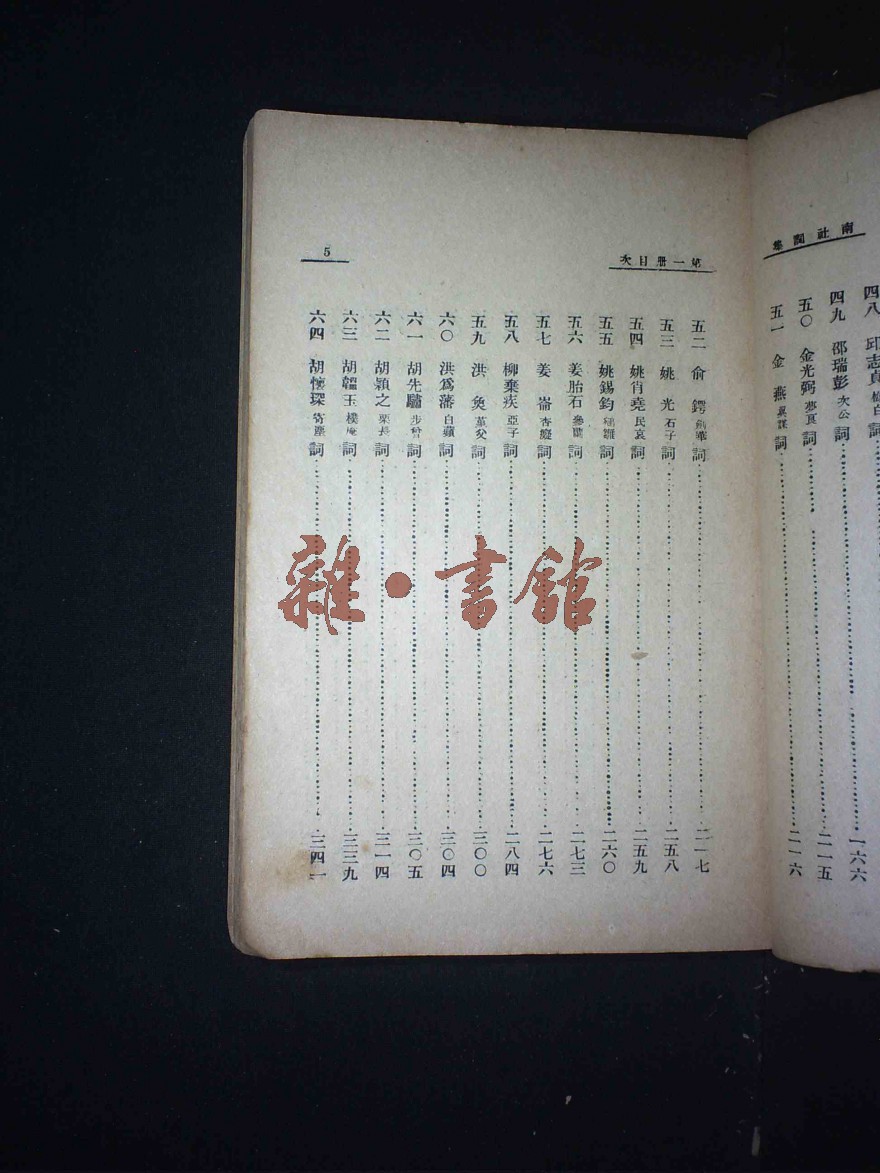 南社詞集
四八 邱志貞 詞
四九 邵瑞彭 次公 詞 二一五
五〇 金光弼 夢良 詞
五一 金燕 詞 二一六
第一册目次
5
五二 俞鍔 劍華 詞 二一七
五三 姚光 石子 詞 二五八
五四 姚肖堯 民哀 詞 二五九
五五 姚錫鈞 詞 二六〇
五六 姜胎石 參蘭 詞 二七三
五七 姜崙 杏癡 詞 二七六
五八 柳棄疾 亞子 詞 二八四
五九 洪奐 堇父 詞 三〇〇
六〇 洪爲藩 白蘋 詞 三〇四
六一 胡先驌 步曾 詞 三〇五
六二 胡穎之 栗長 詞 三一四
六三 胡韞玉 樸庵 詞 三三九
六四 胡懷琛 寄塵 詞 三四一
雜·書館